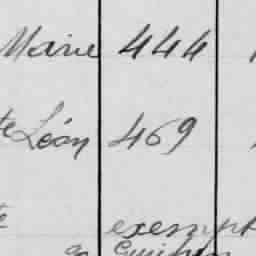 Marie 444
te Léon 469
te exempt